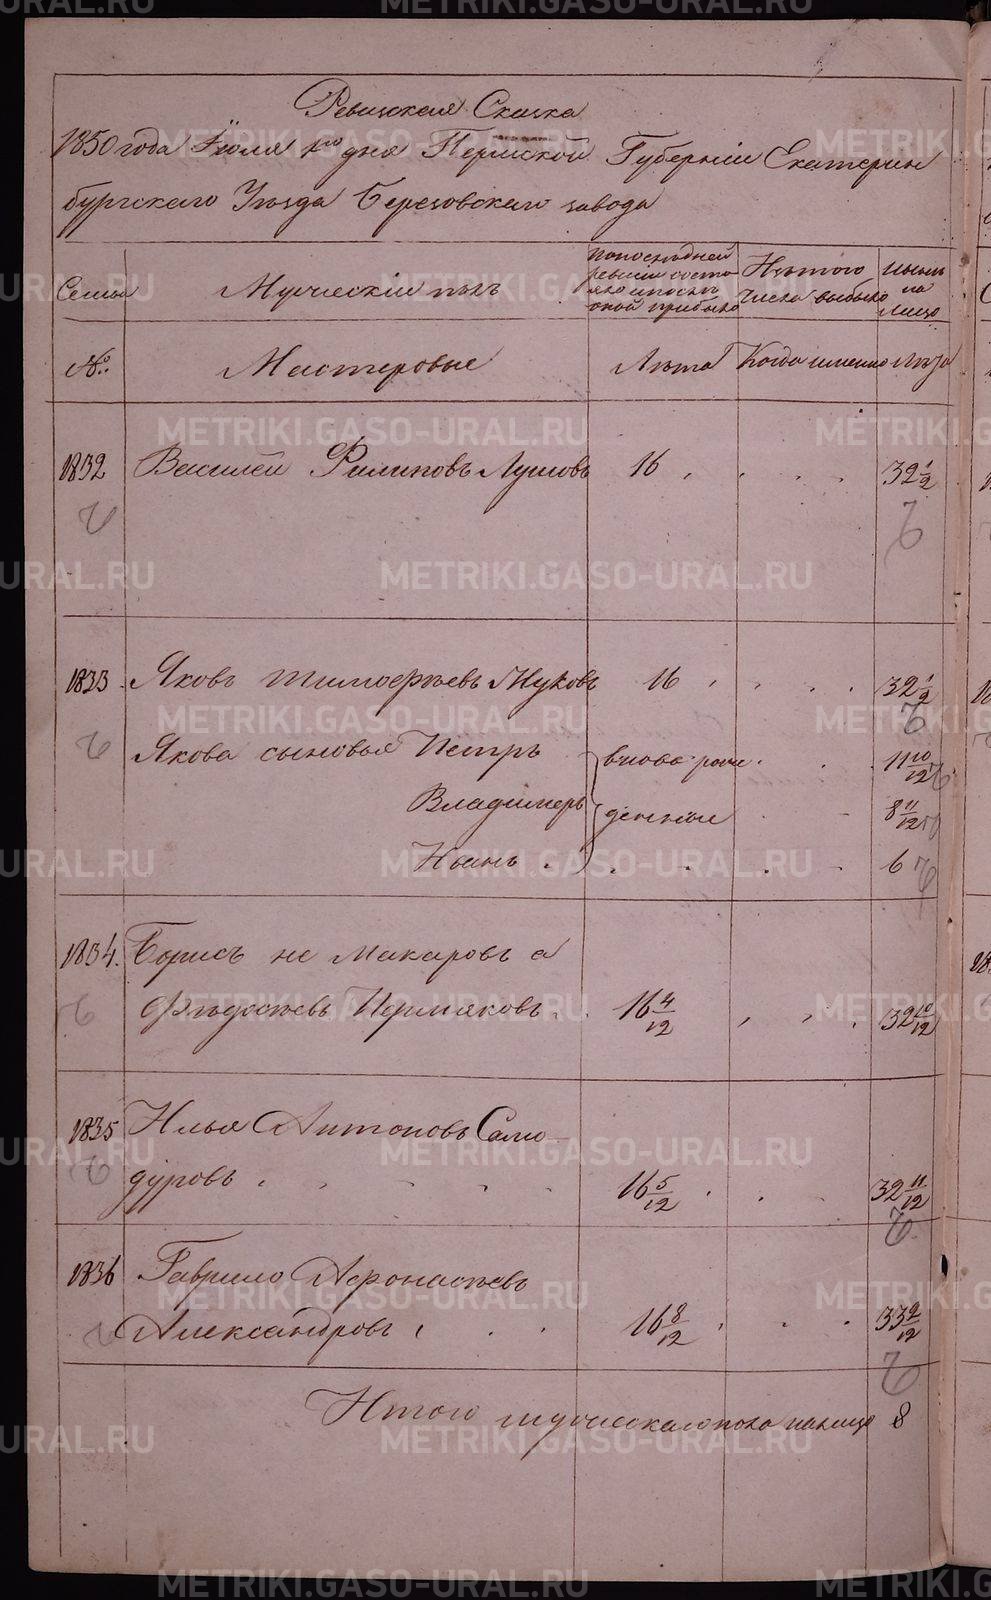 Ревизская Сказка
1850 года Іюля 1го дня Пермской Губерніи Екатерин
бургскаго Уѣзда Березовскаго завода
Семьи Мужескій полъ По последней ревизіи состояло и после оной прибыло Изъ того числа выбыло Ныне на лицо
№ Мастеровые Лѣта Когда именно Лѣта
1832 Василей Филиповъ 16 32 1/2
1833 Яковъ Тимофѣевъ Жуковъ 16 32 1/2
Якова сыновья Петръ вновь рож 11 10/12
Владимеръ денные 8 11/12
Иванъ 6
1834. Борисъ не Макаровъ а
Ѳедосѣевъ Пермяковъ 16 4/12 32 10/12
1835 Илья Антоновъ Само
дуровъ 16 5/12 32 11/12
1836 Гаврило Афонасьевъ
Александровъ 16 8/12 33 2/12
Итого мужескаго пола налицо 8
METRIKI.GASO-URAL.RU